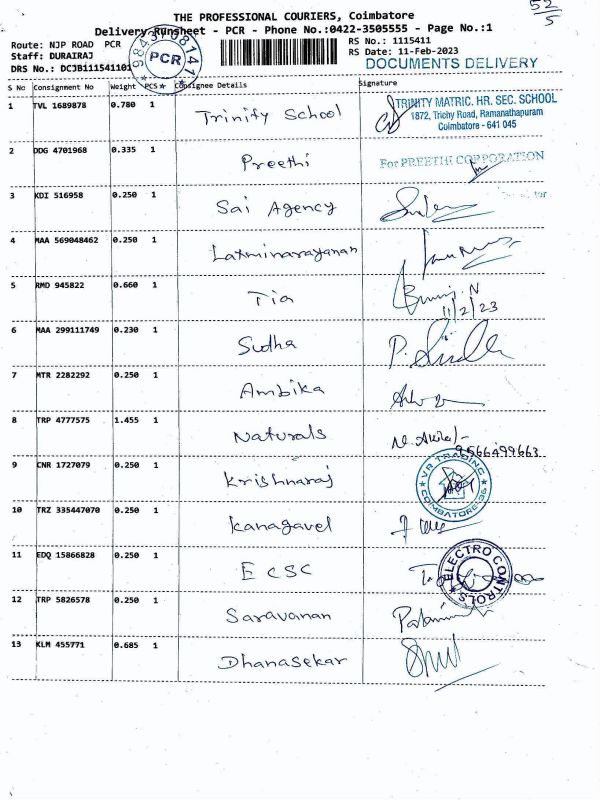 52/5
THE PROFESSIONAL COURIERS, Coimbatore
Delivery Runsheet - PCR - Phone No.:0422-3505555 - Page No.:1
Route: NJP ROAD PCR
RS No.: 1115411
Staff: DURAIRAJ
RS Date: 11-Feb-2023
DRS No.: DCJB111541101
DOCUMENTS DELIVERY
PCR
S No Consignment No Weight PCS Consignee Details Signature
1 TVL 1689878 0.780 1 Trinity School
TRINITY MATRIC. HR. SEC. SCHOOL
1872, Trichy Road, Ramanathapuram
Coimbatore - 641 045
2 DDG 4701968 0.335 1 Preethi For PREETHI CORPORATION
3 KDI 516958 0.250 1 Sai Agency
4 MAA 569048462 0.250 1 Laxminarayanan
5 RMD 945822 0.660 1 Tia
11/2/23
6 MAA 299111749 0.230 1 Sudha
7 MTR 2282292 0.250 1 Ambika
8 TRP 4777575 1.455 1 Naturals
9566499663
9 CNR 1727079 0.250 1 Krishnaraj VR TRADING COIMBATORE-36
10 TRZ 335447070 0.250 1 Kanagavel
11 EDQ 15866828 0.250 1 ECSC ELECTRO CONTROLS
12 TRP 5826578 0.250 1 Saravanan
13 KLM 455771 0.685 1 Dhanasekar